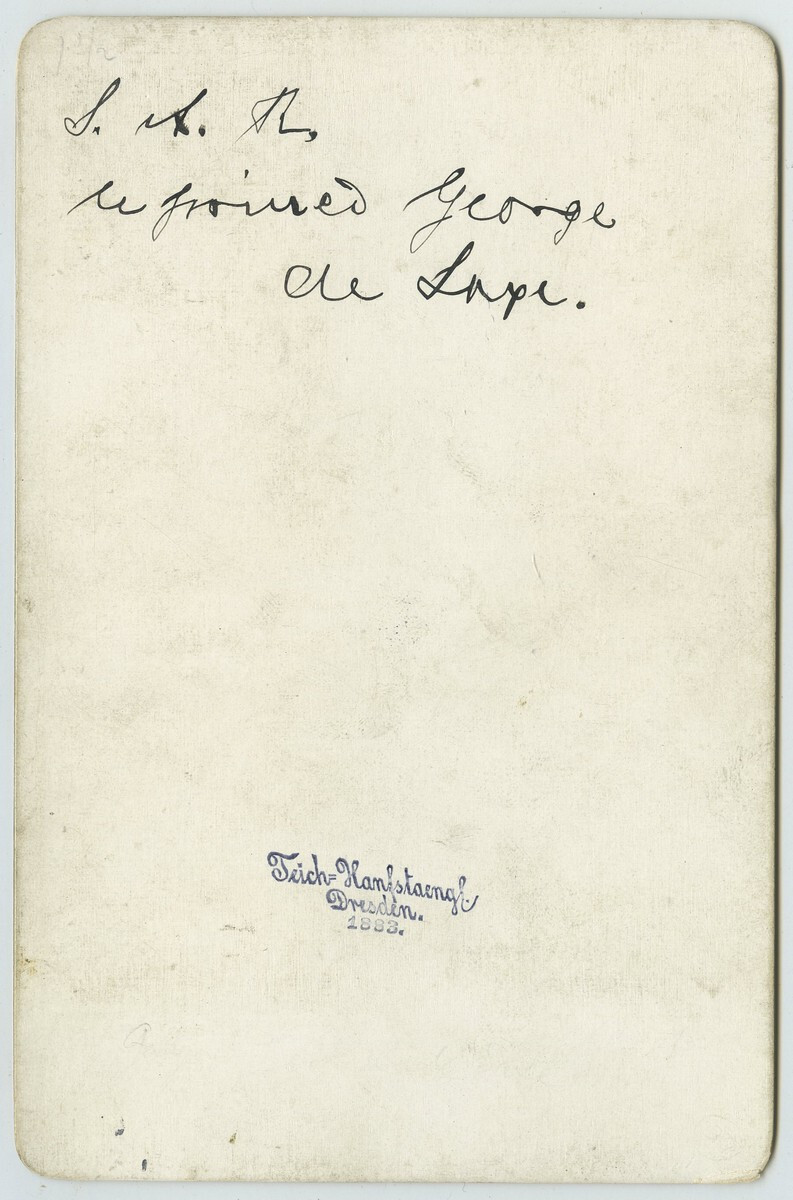 S. A. R.
le prince George
de Saxe.
Teich=Hanfstaengl.
Dresden.
1883.